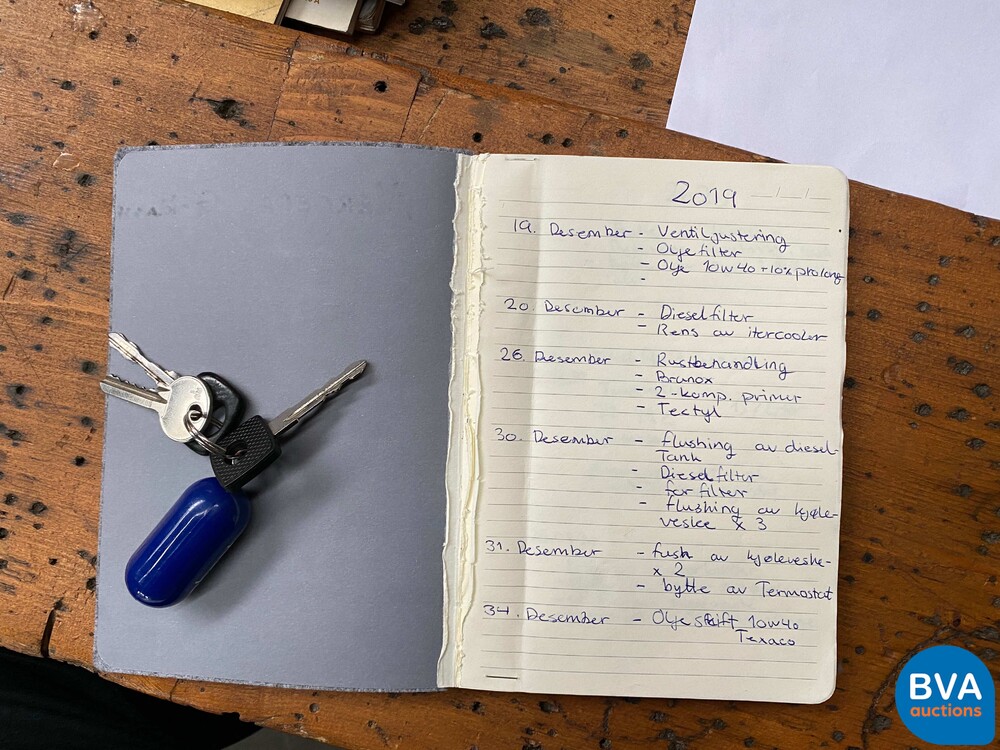 2019
19. Desember - Ventiljustering
- Olje filter
- Olje 10w40 +10% prolong
-
20. Desember - Diesel filter
- Rens av itercooler
26. Desember - Rustbehandling
- Brunox
- 2-komp. primer
- Tectyl
30. Desember - flushing av diesel-
Tank
- Diesel filter
- for filter
- flushing av kjøle-
veske x 3
31. Desember - flush av kjøleveske-
x 2
- bytte av Termostat
Desember - Olje skift 10w40
Texaco
BVA
auctions